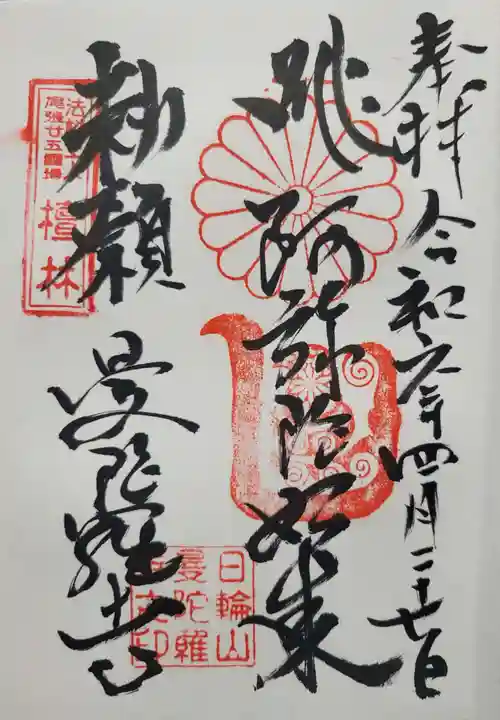 奉拝 令和六年四月二十七日
跳阿弥陀如来
勅願 曼陀羅寺
尾張廿五霊場
檀林
日輪山
曼陀羅
寺之印